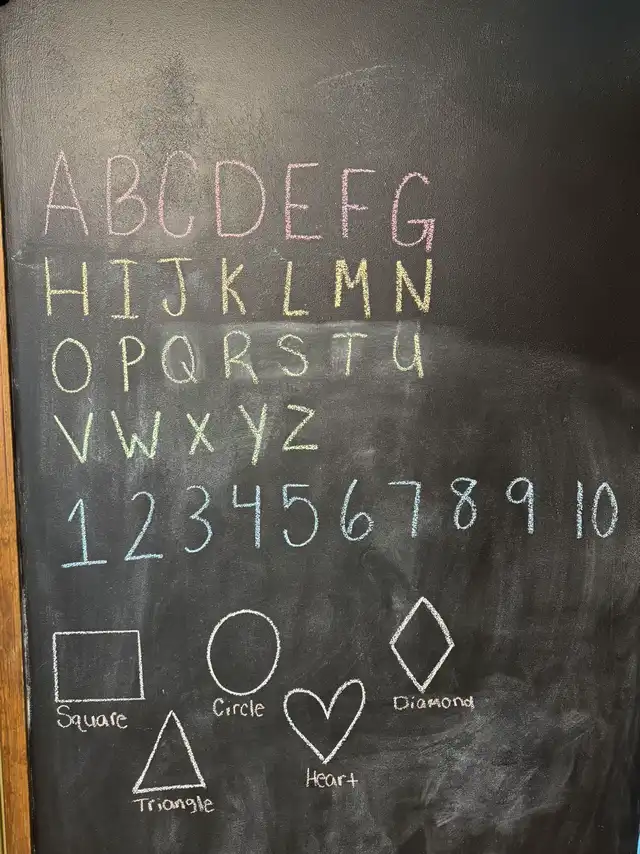 A B C D E F G
H I J K L M N
O P Q R S T U
V W X Y Z
1 2 3 4 5 6 7 8 9 10
Square Circle Diamond
Triangle Heart